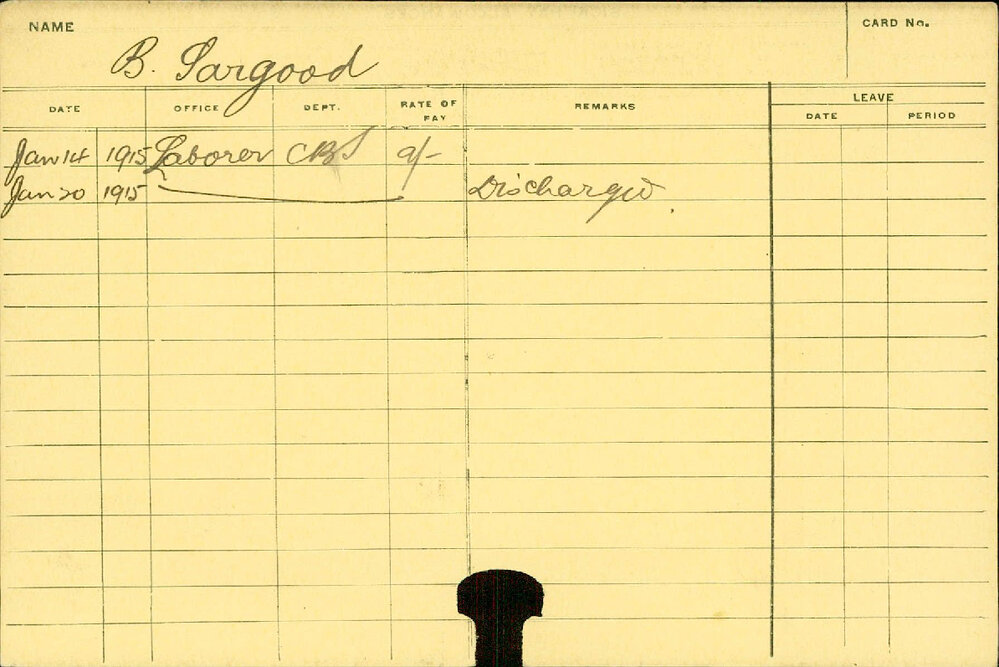 NAME
CARD No.
B. Sargood
DATE OFFICE DEPT. RATE OF PAY REMARKS LEAVE
DATE PERIOD
Jan 14 1915 Laborer 9/-
Jan 20 1915 Discharged.